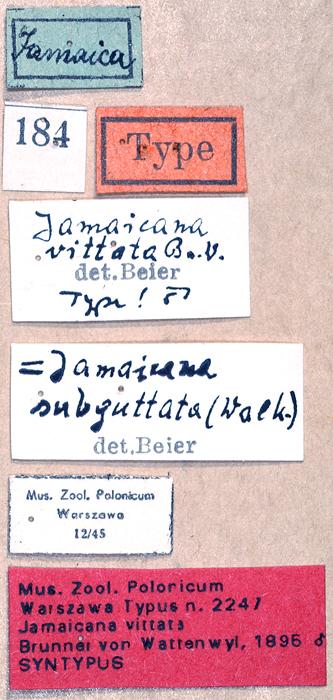 Jamaica
184
Type
Jamaicana
vittata Br.V.
det.Beier
Type! ♂
=Jamaicana
subguttata (Walk.)
det.Beier
Mus. Zool. Polonicum
Warszawa
12/45
Mus. Zool. Polonicum
Warszawa Typus n. 2247
Jamaicana vittata
Brunner von Wattenwyl, 1895 ♂
SYNTYPUS